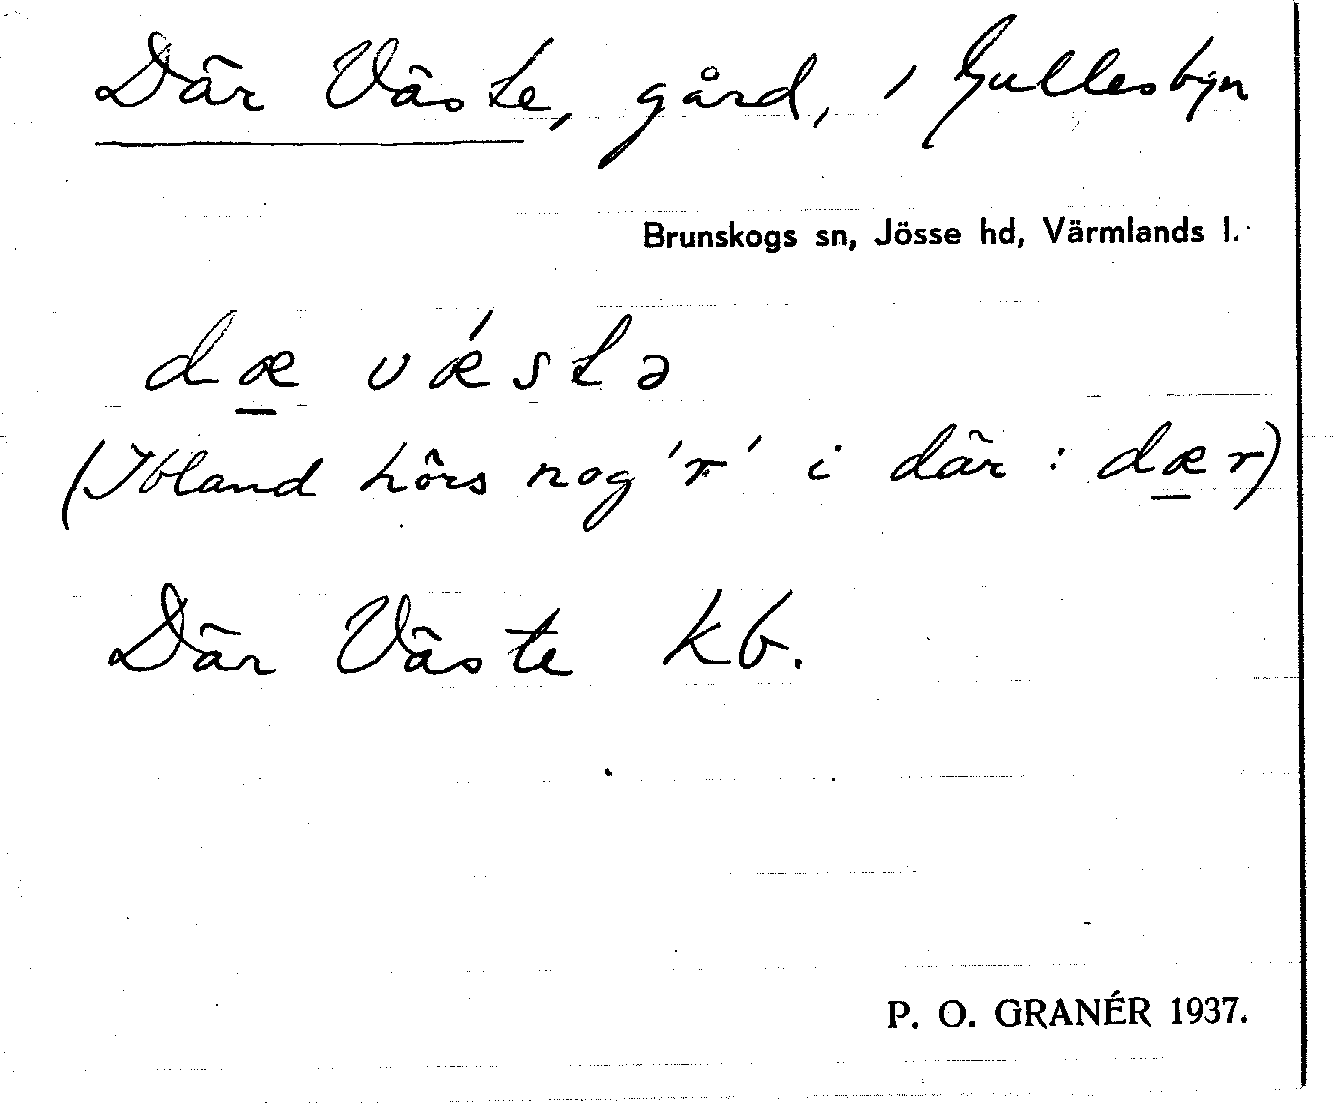 Där Väste, gård, i Gullesbyn
Brunskogs sn, Jösse hd, Värmlands l.
dæ̲ vǽstə
(Ibland hörs nog 'r' i där : dæ̲r)
Där Väste kb.
P. O. GRANÉR 1937.